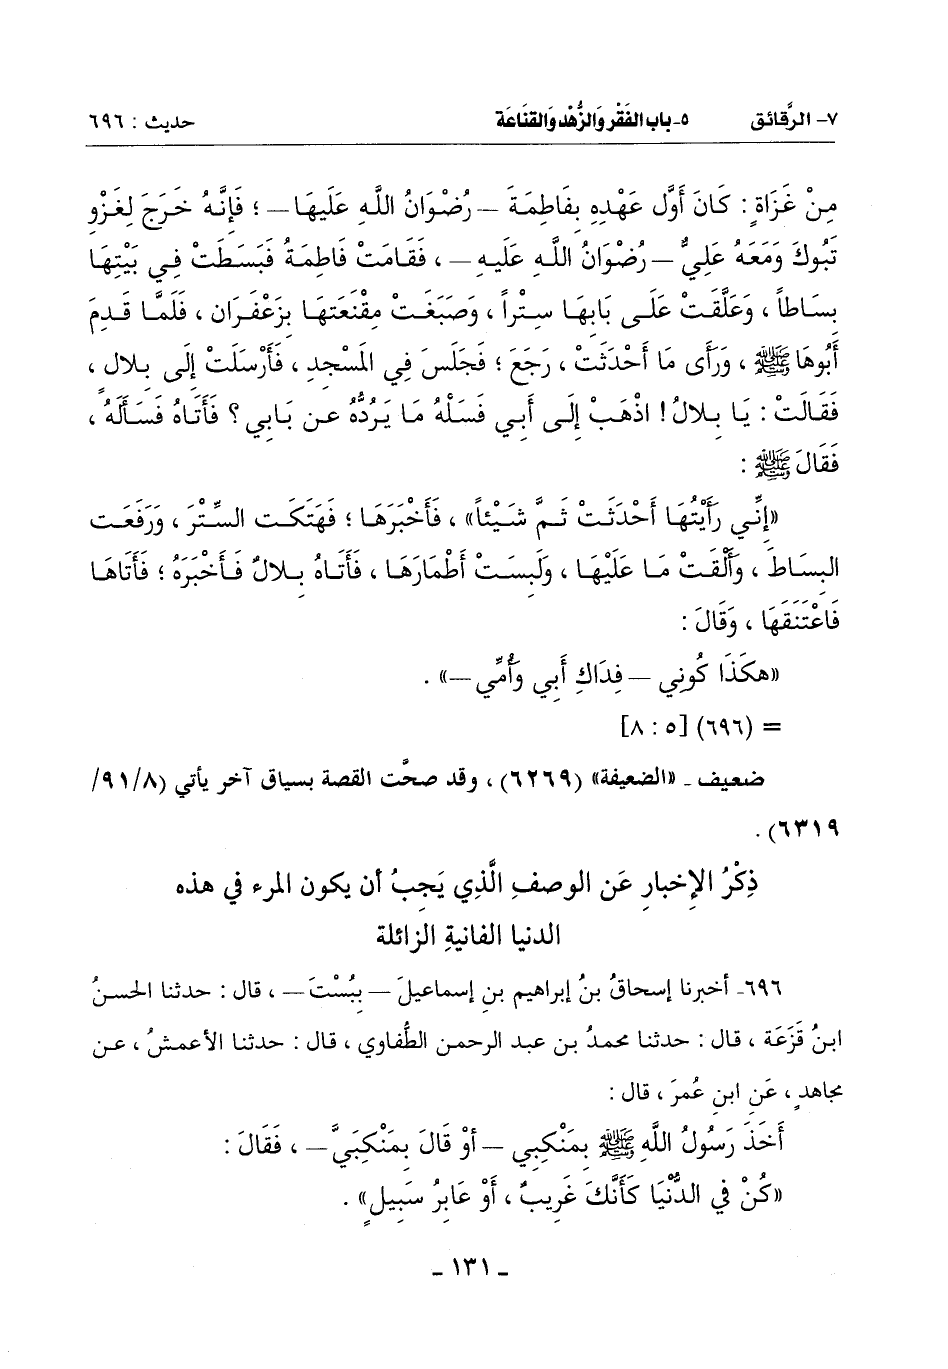 ٧- الرَّقائق ٥-باب الفَقْر وَالزُّهْد وَالقنَاعَة حديث : ٦٩٦
مِنْ غَزَاةٍ : كَانَ أَوَّل عَهْدِهِ بِفَاطِمَةَ – رُضْوَانُ اللَّهِ عَلَيهَا – ؛ فَإِنَّهُ خَرَجَ لِغَزْوِ
تَبُوكَ وَمَعَهُ عَلِيٌّ – رُضْوَانُ اللَّهِ عَلَيهِ – ، فَقَامَتْ فَاطِمَةُ فَبَسَطَتْ فِي بَيْتِهَا
بِسَاطاً ، وَعَلَّقَتْ عَلَى بَابِهَا سِتْراً ، وَصَبَغَتْ مِقْنَعَتَهَا بِزَعْفَرَانٍ ، فَلَمَّا قَدِمَ
أَبُوهَا ﷺ ، وَرَأَى مَا أَحْدَثَتْ ، رَجَعَ ؛ فَجَلَسَ فِي المَسْجِدِ ، فَأَرْسَلَتْ إِلَى بِلالٍ ،
فَقَالَتْ : يَا بِلالُ ! اذْهَبْ إِلَى أَبِي فَسَلْهُ مَا يَرُدُّهُ عَن بَابِي ؟ فَأَتَاهُ فَسَأَلَهُ ،
فَقَالَ ﷺ :
«إِنِّي رَأَيْتُهَا أَحْدَثَتْ ثَمَّ شَيْئاً» ، فَأَخْبَرَهَا ؛ فَهَتَكَت السِّتْرَ ، وَرَفَعَت
البِسَاطَ ، وَأَلْقَتْ مَا عَلَيْهَا ، وَلَبِسَتْ أَطْمَارَهَا ، فَأَتَاهُ بِلالٌ فَأَخْبَرَهُ ؛ فَأَتَاهَا
فَاعْتَنَقَهَا ، وَقَالَ :
«هكَذَا كُونِي – فِدَاكِ أَبِي وَأُمِّي –» .
= (٦٩٦) [٥ : ٨]
ضعيف ـ «الضعيفة» (٦٢٦٩) ، وقد صحَّت القصة بسياق آخر يأتي (٨/ ٩١/
٦٣١٩) .
ذِكْرُ الإخبارِ عَن الوصفِ الَّذِي يَجِبُ أن يكون المرء في هذه
الدنيا الفانيةِ الزائلة
٦٩٦ـ أخبرنا إسحاقُ بنُ إبراهيم بنِ إسماعيلَ – بِبُسْتَ – ، قال : حدثنا الحسنُ
ابنُ قَزَعَة ، قال : حدثنا محمدُ بن عبد الرحمن الطُّفاوي ، قال : حدثنا الأعمشُ ، عن
مجاهدٍ ، عَنِ ابنِ عُمرَ ، قال :
أَخَذَ رَسُولُ اللَّهِ ﷺ بِمَنْكِبِي – أَوْ قَالَ بِمَنْكِبَيَّ – ، فَقَالَ :
«كُنْ فِي الدُّنْيَا كَأَنَّكَ غَرِيبٌ ، أَوْ عَابِرُ سَبِيلٍ» .
ـ ١٣١ ـ